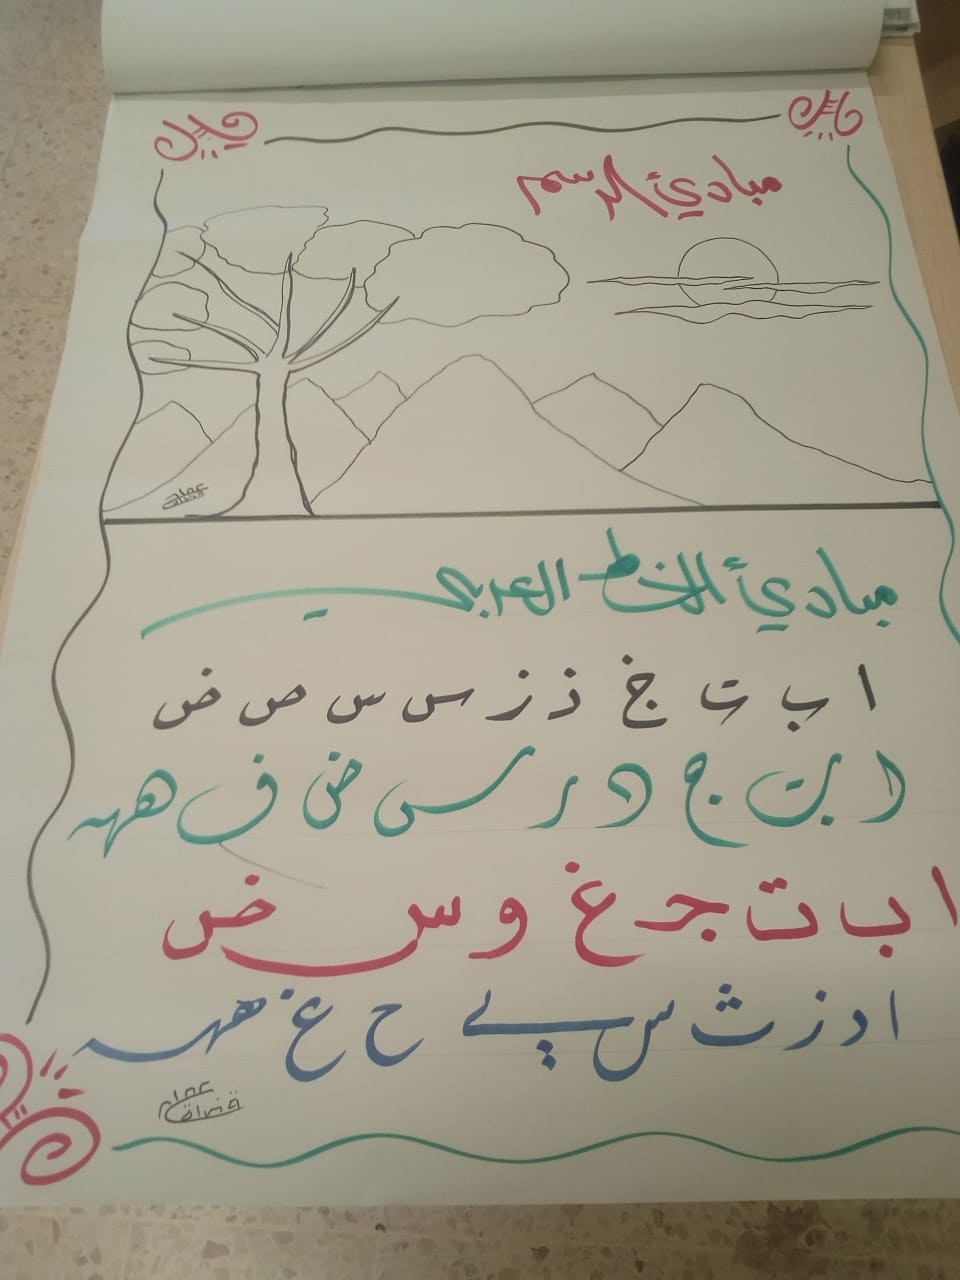 مبادئ الرسم
مبادئ الخط العربي
ا ب ت خ ذ ز س س ص ض
ا ب ت ج د ر س ض ف هہ
ا ب ت ج غ و س ض
ا د ز ث س ي ح غ هہ